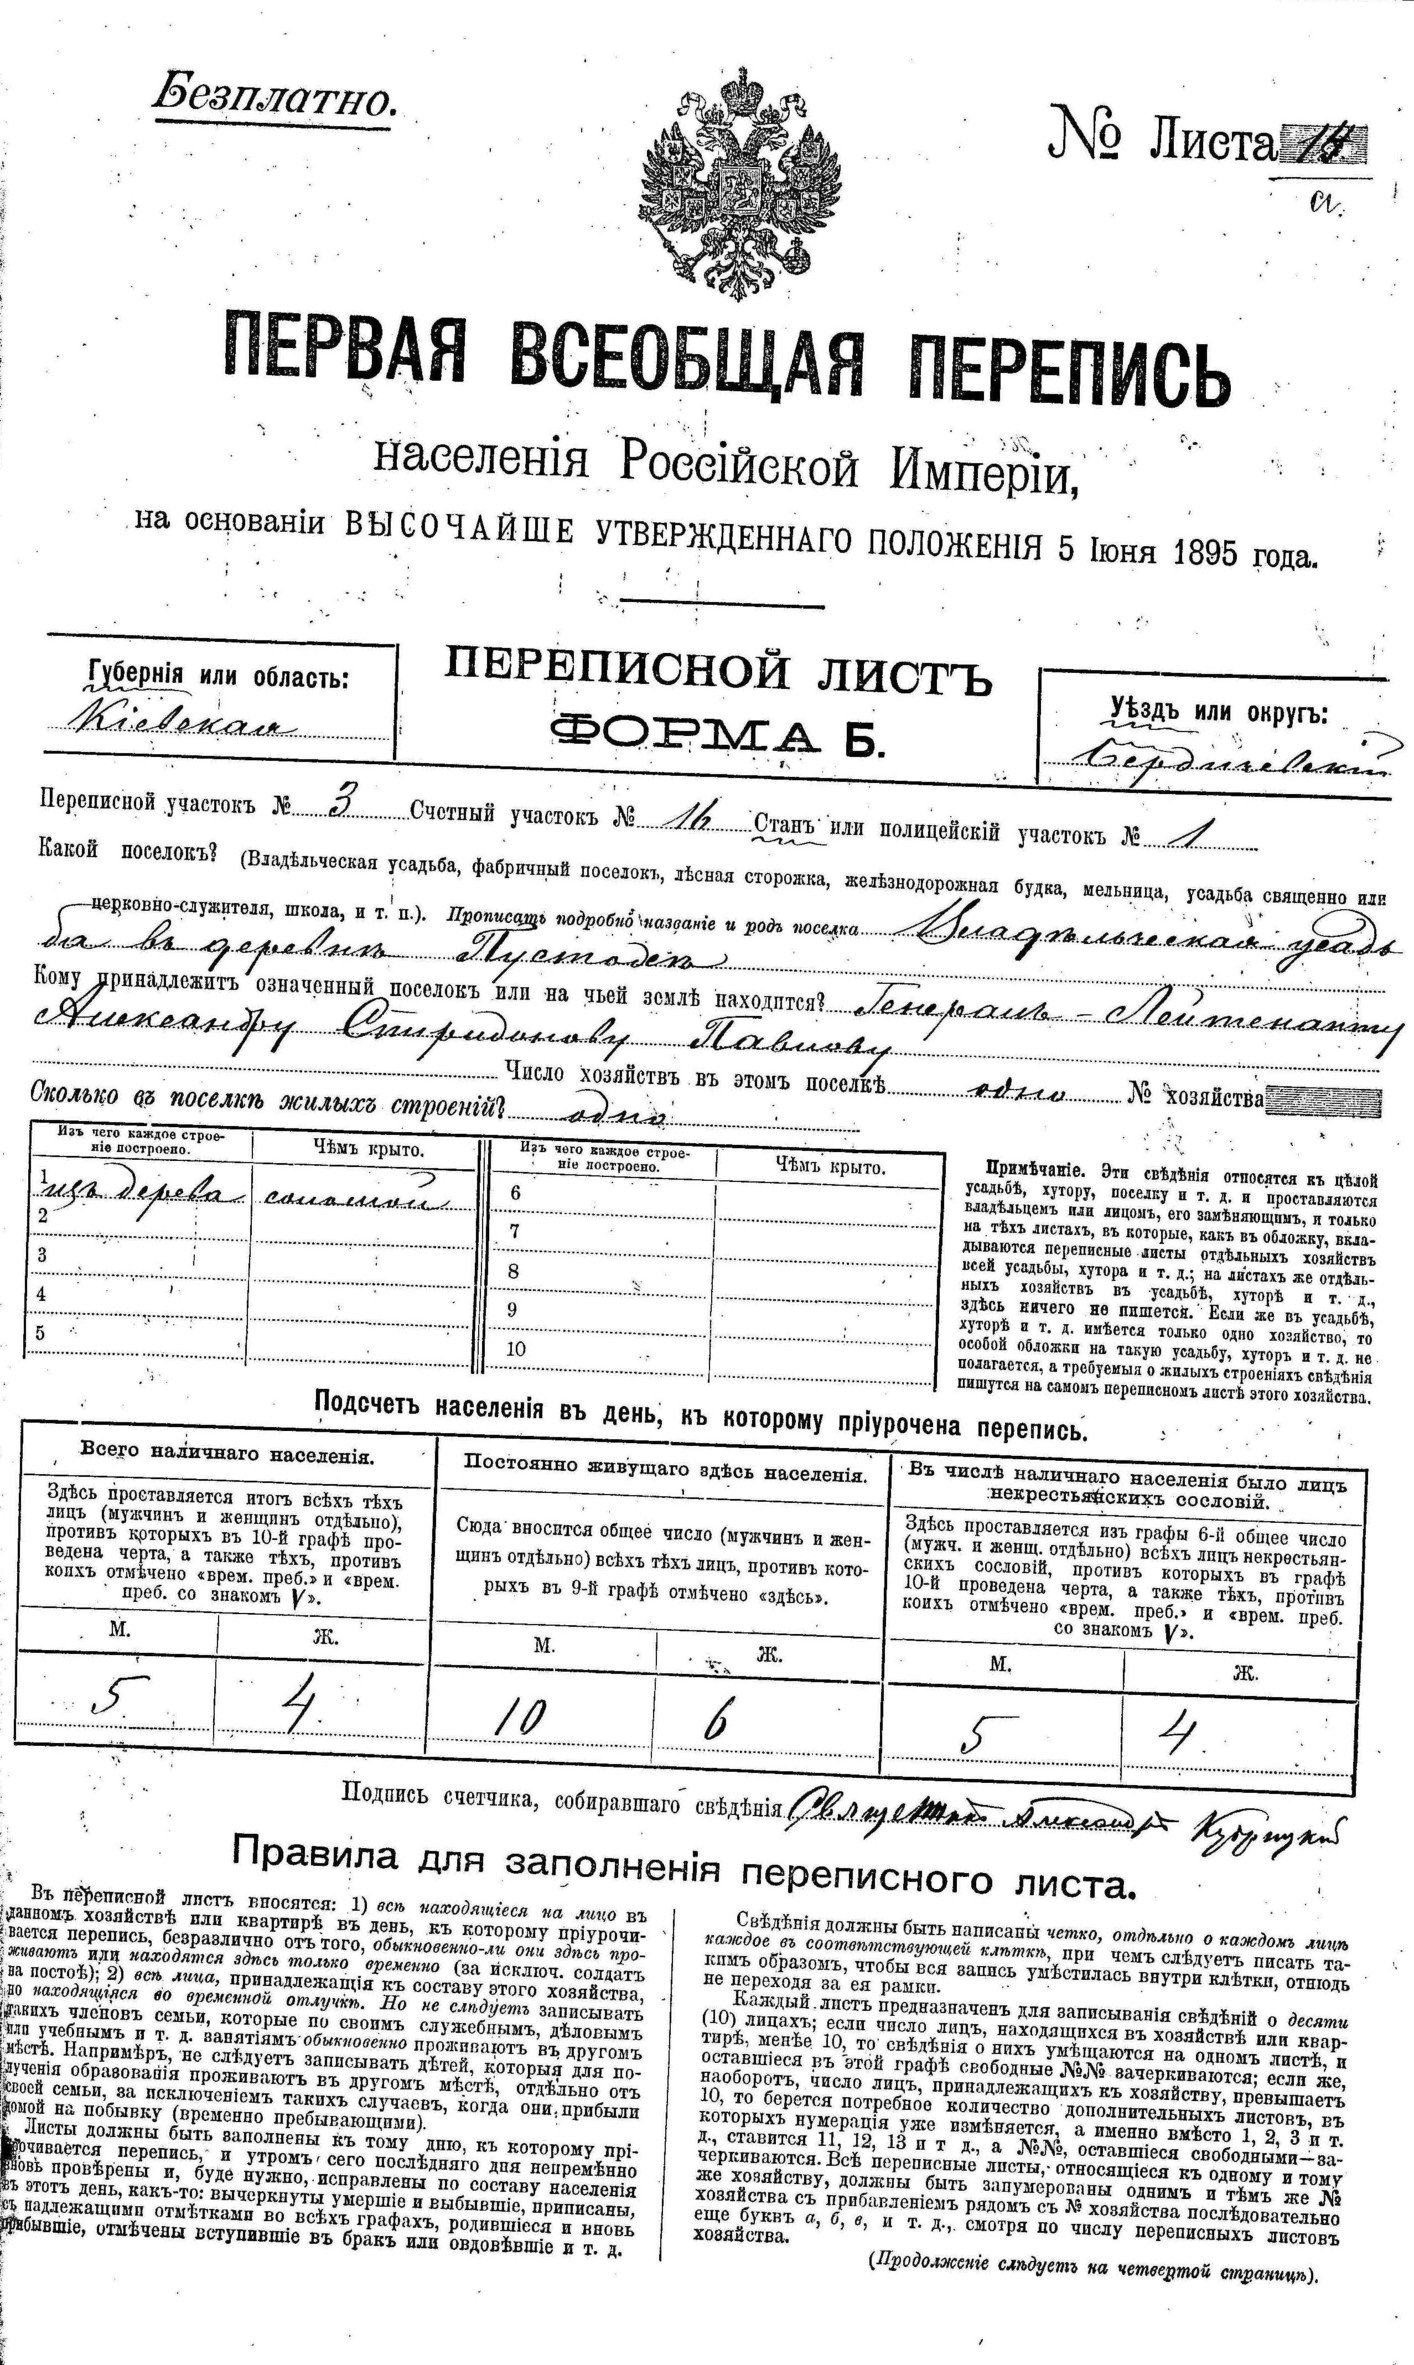 Безплатно.
№ Листа
а.
ПЕРВАЯ ВСЕОБЩАЯ ПЕРЕПИСЬ
населенія Россійской Имперіи,
на основаніи ВЫСОЧАЙШЕ УТВЕРЖДЕННАГО ПОЛОЖЕНІЯ 5 Іюня 1895 года.
Губернія или область:
Кіевская
ПЕРЕПИСНОЙ ЛИСТЪ
ФОРМА Б.
Уѣздъ или округъ:
Бердичевскій
Переписной участокъ № 3 Счетный участокъ № 16 Станъ или полицейскій участокъ № 1
Какой поселокъ? (Владѣльческая усадьба, фабричный поселокъ, лѣсная сторожка, желѣзнодорожная будка, мельница, усадьба священно или
церковно-служителя, школа, и т. п.). Прописать подробно названіе и родъ поселка Владѣльческая усадь
ба въ деревнѣ
Кому принадлежитъ означенный поселокъ или на чьей землѣ находится? Генералъ-Лейтенанту
Александру Спиридонову Павлову
Число хозяйствъ въ этомъ поселкѣ одно № хозяйства
Сколько въ поселкѣ жилыхъ строеній? одно
Изъ чего каждое строе-
ніе построено.
Чѣмъ крыто.
Изъ чего каждое строе-
ніе построено.
Чѣмъ крыто.
1 изъ дерева соломой 6
2 7
3 8
4 9
5 10
Примѣчаніе. Эти свѣдѣнія относятся къ цѣлой
усадьбѣ, хутору, поселку и т. д. и проставляются
владѣльцемъ или лицомъ, его замѣняющимъ, и только
на тѣхъ листахъ, въ которые, какъ въ обложку, вкла-
дываются переписные листы отдѣльныхъ хозяйствъ
всей усадьбы, хутора и т. д.; на листахъ же отдѣль-
ныхъ хозяйствъ въ усадьбѣ, хуторѣ и т. д.,
здѣсь ничего не пишется. Если же въ усадьбѣ,
хуторѣ и т. д. имѣется только одно хозяйство, то
особой обложки на такую усадьбу, хуторъ и т. д. не
полагается, а требуемыя о жилыхъ строеніяхъ свѣдѣнія
пишутся на самомъ переписномъ листѣ этого хозяйства.
Подсчетъ населенія въ день, къ которому пріурочена перепись.
Всего наличнаго населенія.
Здѣсь проставляется итогъ всѣхъ тѣхъ
лицъ (мужчинъ и женщинъ отдѣльно),
противъ которыхъ въ 10-й графѣ про-
ведена черта, а также тѣхъ, противъ
коихъ отмѣчено «врем. преб.» и «врем.
преб. со знакомъ V».
М. Ж.
5 4.
Постоянно живущаго здѣсь населенія.
Сюда вносится общее число (мужчинъ и жен-
щинъ отдѣльно) всѣхъ тѣхъ лицъ, противъ кото-
рыхъ въ 9-й графѣ отмѣчено «здѣсь».
М. Ж.
10 6
Въ числѣ наличнаго населенія было лицъ
некрестьянскихъ сословій.
Здѣсь проставляется изъ графы 6-й общее число
(мужч. и женщ. отдѣльно) всѣхъ лицъ некрестьян-
скихъ сословій, противъ которыхъ въ графѣ
10-й проведена черта, а также тѣхъ, противъ
коихъ отмѣчено «врем. преб.» и «врем. преб.
со знакомъ V».
М. Ж.
5 4.
Подпись счетчика, собиравшаго свѣдѣнія Священникъ Александръ
Правила для заполненія переписного листа.
Въ переписной листъ вносятся: 1) всѣ находящіеся на лицо въ
данномъ хозяйствѣ или квартирѣ въ день, къ которому пріурочи-
вается перепись, безразлично отъ того, обыкновенно-ли они здѣсь про-
живаютъ или находятся здѣсь только временно (за исключ. солдатъ
на постоѣ); 2) всѣ лица, принадлежащія къ составу этого хозяйства,
но находящіяся во временной отлучкѣ. Но не слѣдуетъ записывать
такихъ членовъ семьи, которые по своимъ служебнымъ, дѣловымъ
или учебнымъ и т. д. занятіямъ обыкновенно проживаютъ въ другомъ
мѣстѣ. Напримѣръ, не слѣдуетъ записывать дѣтей, которыя для по-
лученія образованія проживаютъ въ другомъ мѣстѣ, отдѣльно отъ
своей семьи, за исключеніемъ такихъ случаевъ, когда они прибыли
домой на побывку (временно пребывающими).
Листы должны быть заполнены къ тому дню, къ которому прі-
урочивается перепись, и утромъ сего послѣдняго дня непремѣнно
вновь провѣрены и, буде нужно, исправлены по составу населенія
въ этотъ день, какъ-то: вычеркнуты умершіе и выбывшіе, приписаны,
съ надлежащими отмѣтками во всѣхъ графахъ, родившіеся и вновь
прибывшіе, отмѣчены вступившіе въ бракъ или овдовѣвшіе и т. д.
Свѣдѣнія должны быть написаны четко, отдѣльно о каждомъ лицѣ
каждое въ соотвѣтствующей клѣткѣ, при чемъ слѣдуетъ писать та-
кимъ образомъ, чтобы вся запись умѣстилась внутри клѣтки, отнюдь
не переходя за ея рамки.
Каждый листъ предназначенъ для записыванія свѣдѣній о десяти
(10) лицахъ; если число лицъ, находящихся въ хозяйствѣ или квар-
тирѣ, менѣе 10, то свѣдѣнія о нихъ умѣщаются на одномъ листѣ, и
оставшіеся въ этой графѣ свободные №№ зачеркиваются; если же,
наоборотъ, число лицъ, принадлежащихъ къ хозяйству, превышаетъ
10, то берется потребное количество дополнительныхъ листовъ, въ
которыхъ нумерація уже измѣняется, а именно вмѣсто 1, 2, 3 и т.
д., ставится 11, 12, 13 и т д., а №№, оставшіеся свободными—за-
черкиваются. Всѣ переписные листы, относящіеся къ одному и тому
же хозяйству, должны быть занумерованы однимъ и тѣмъ же №
хозяйства съ прибавленіемъ рядомъ съ № хозяйства послѣдовательно
еще буквъ а, б, в, и т. д., смотря по числу переписныхъ листовъ
хозяйства.
(Продолженіе слѣдуетъ на четвертой страницѣ).